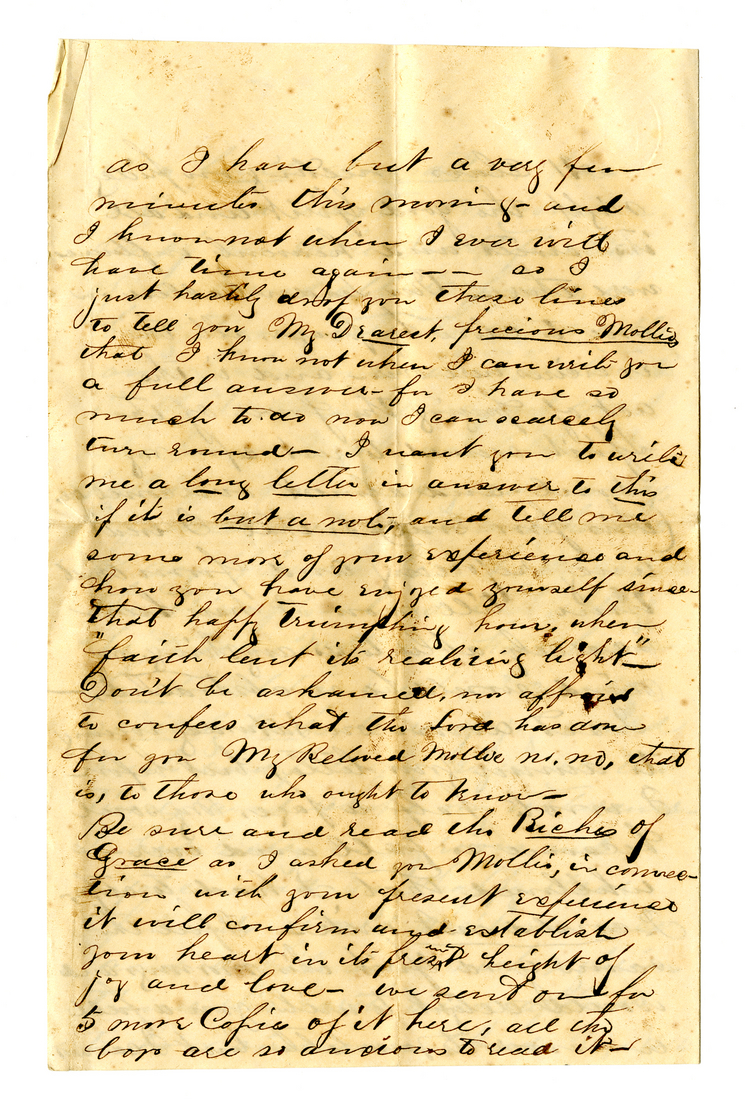 as I have but a very few
minutes this morning - and
I know not when I ever will
have time again - - so I
just hastily drop you these lines
to tell you My Dearest, precious Mollie
that I know not when I can write you
a full answer - for I have so
much to do now I can scarcely
turn round - I want you to write
me a long letter in answer to this
if it is but a note, and tell me
some more of your experience and
how you have enjoyed yourself since
that happy triumphing hour, when
"faith lent its realizing light" -
Don't be ashamed, nor affraid
to confess what the Lord has done
for you My Beloved Mollie no, no, that
is, to those who ought to know -
Be sure and read the Riches of
Grace as I asked you Mollie, in connec-
tion with your present experience
it will confirm and establish
your heart in its present height of
joy and love - we sent on for
5 more Copies of it here, all the
boys are so anxious to read it -